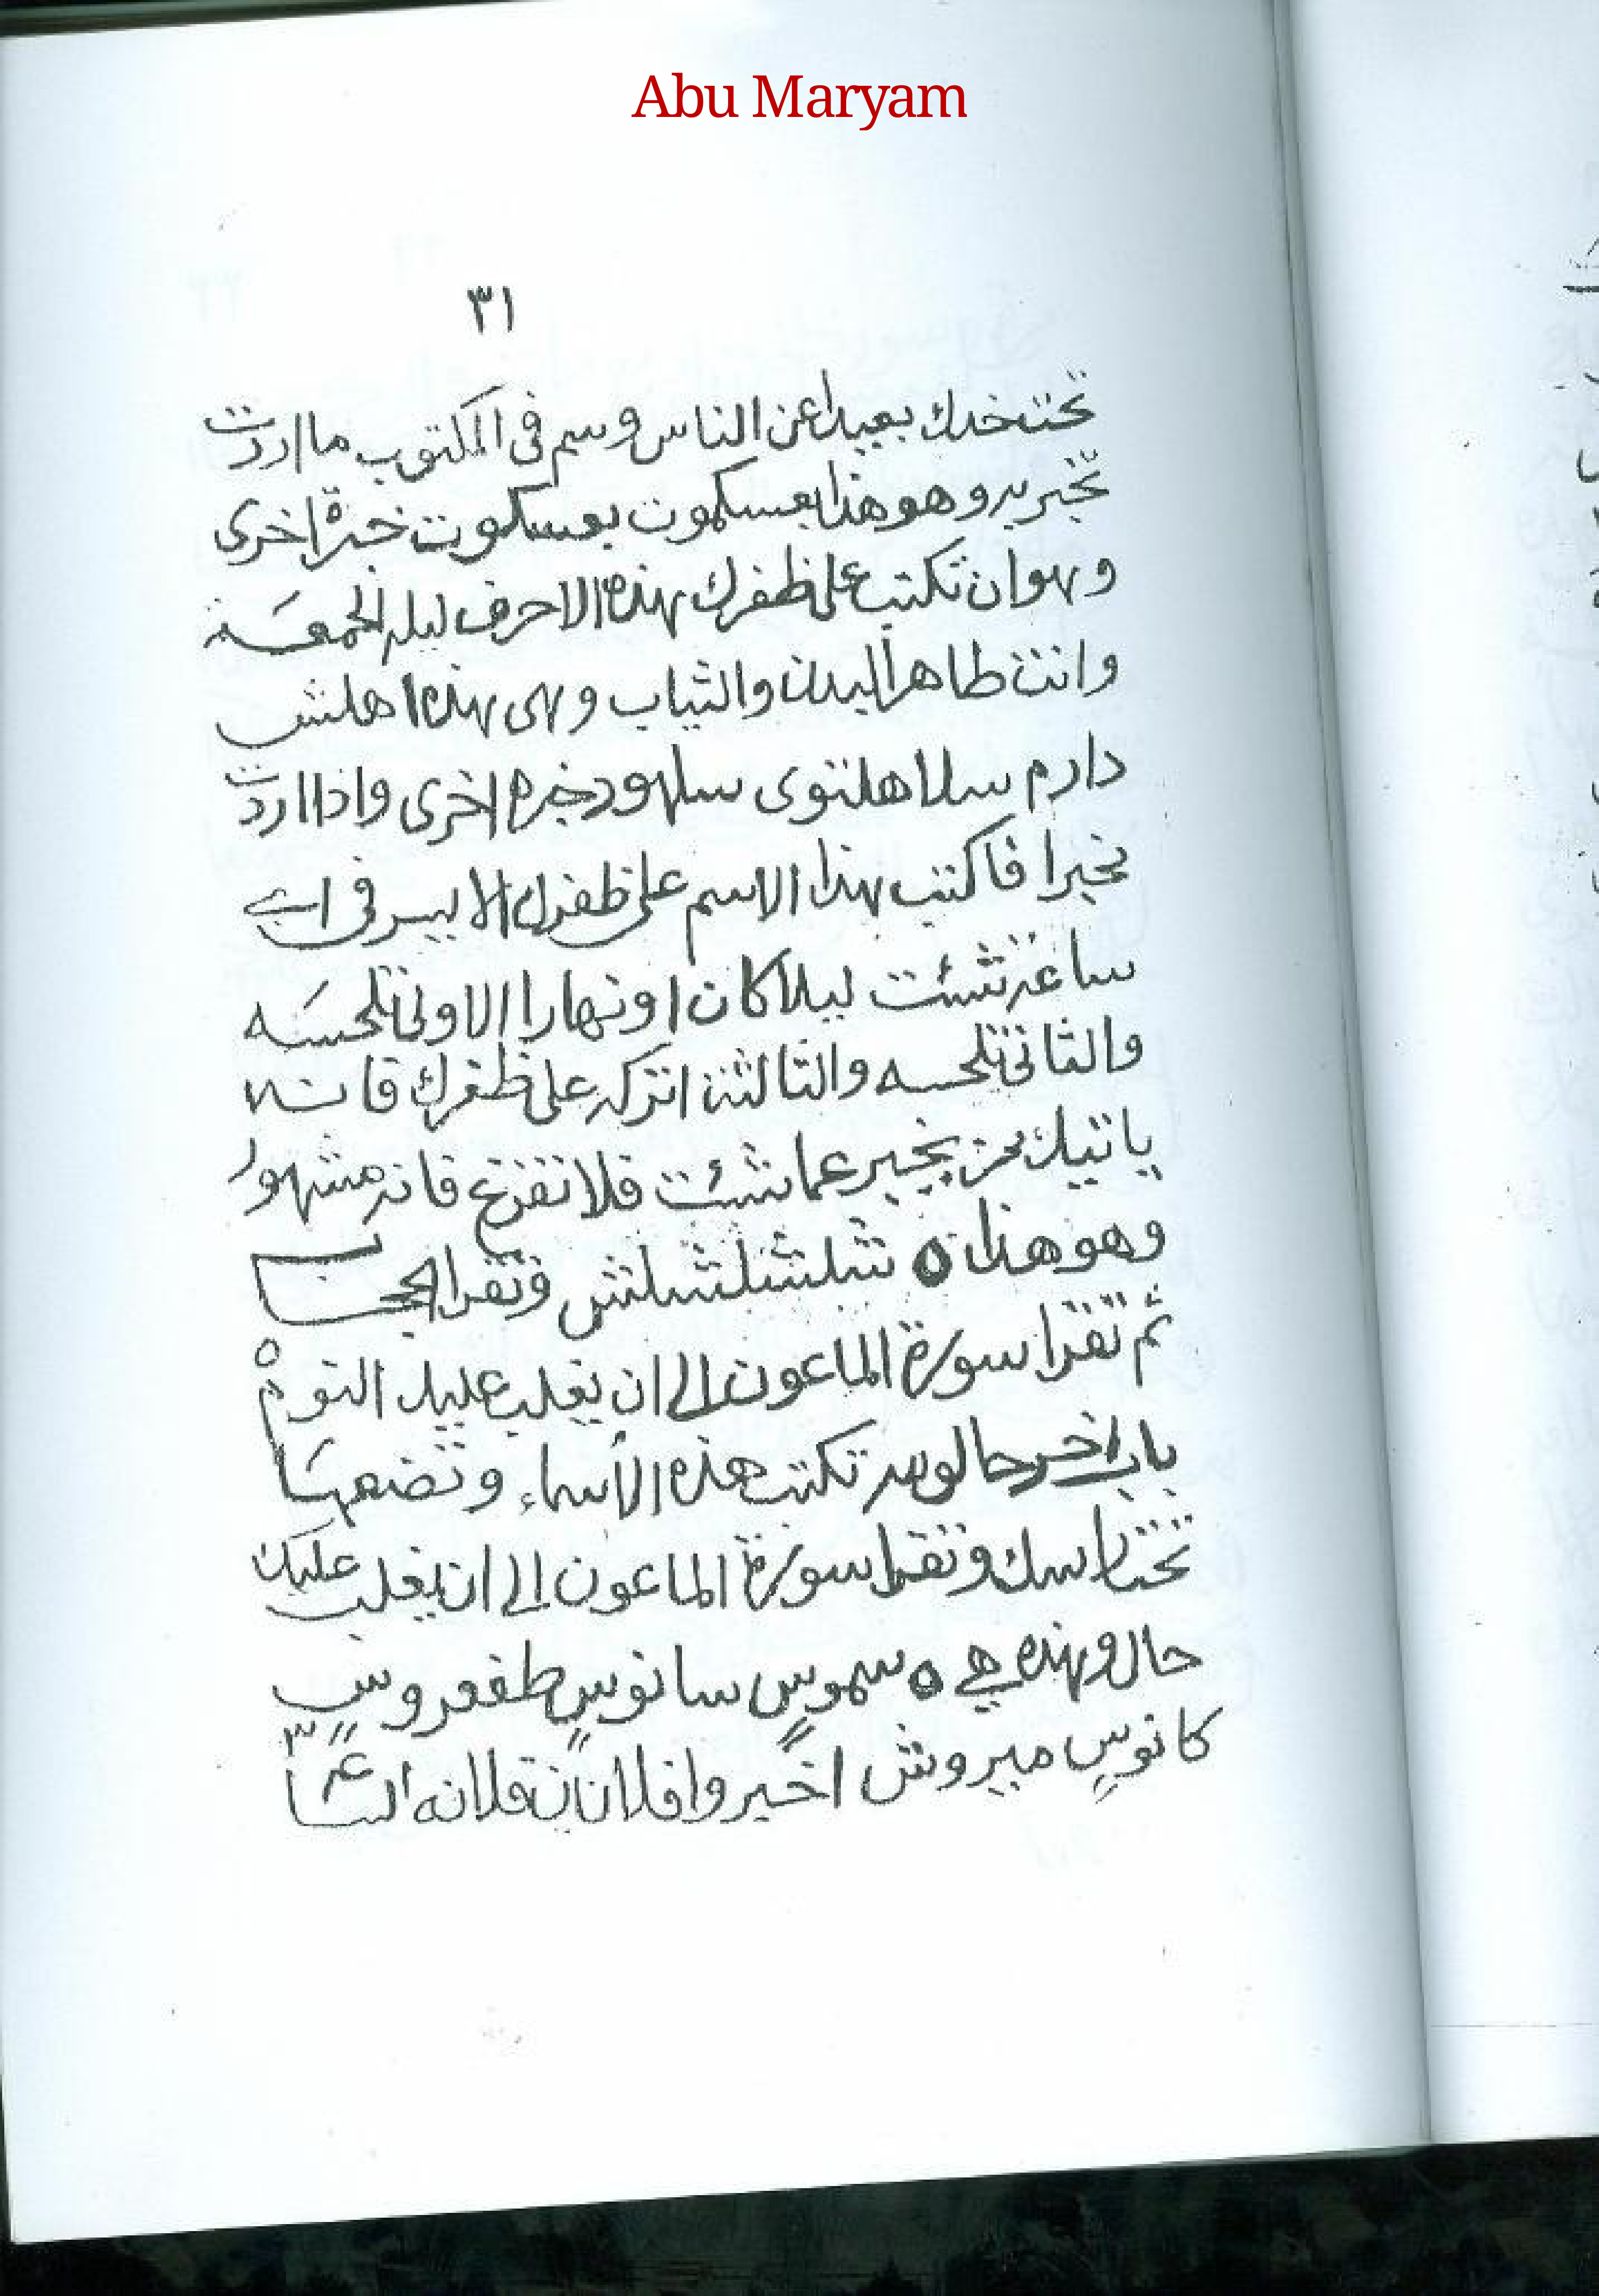 Abu Maryam
٣١
تحت خدك بعيدا عن الناس وسم فى المكتوب ما اردت
تخبر به وهو هذا بعسكموت بعسكوت خبرة اخرى
وهو ان تكتب على ظفرك هذه الاحرف ليله الجمعة
وانت طاهر البدن والثياب وهى هذه اهلش
دارم سلا هلتوى سلهود خبره اخرى واذا اردت
خبرا فاكتب هذا الاسم على ظفرك الايسر فى اى
ساعة شئت ليلا كان او نهارا الاولى تلحسه
والثانى تلحسه والثالثة اتركه على ظفرك فانه
ياتيك من يخبر عما شئت فلا تفزع فانه مشهور
وهو هذا ه شلشلشلش وتقرا
ثم تقرا سورة الماعون الى ان يغلب عليك النوم
باب اخر تكتب هذه الأسماء وتضعها
تحت راسك وتقرا سورة الماعون الى ان يغلب عليك
حال وهذه هي ه سموسٍ سانوسٍ طفعروسٍ
كانوسٍ ميروش اخبروا فلان بن فلانه الساعة ٣